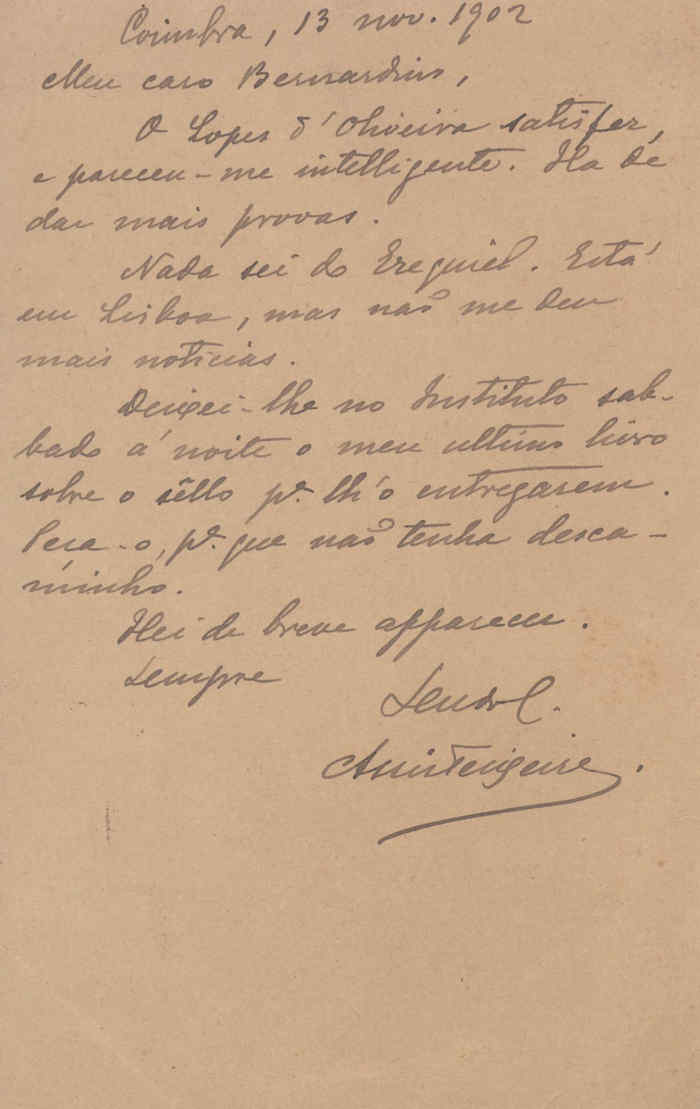 Coimbra, 13 nov. 1902
Meu caro Bernardino,
O Lopes d'Oliveira satisfez,
e pareceu-me intelligente. Ha de
dar mais provas.
Nada sei do Ezequiel. Está
em Lisboa, mas não me deu
mais noticias.
Deixei-lhe no Instituto sab-
bado á noite o meu ultimo livro
sobre o sêllo pª. lh'o entregarem.
Peça-o, pª. que não tenha desca-
minho.
Hei de breve apparecer.
Sempre